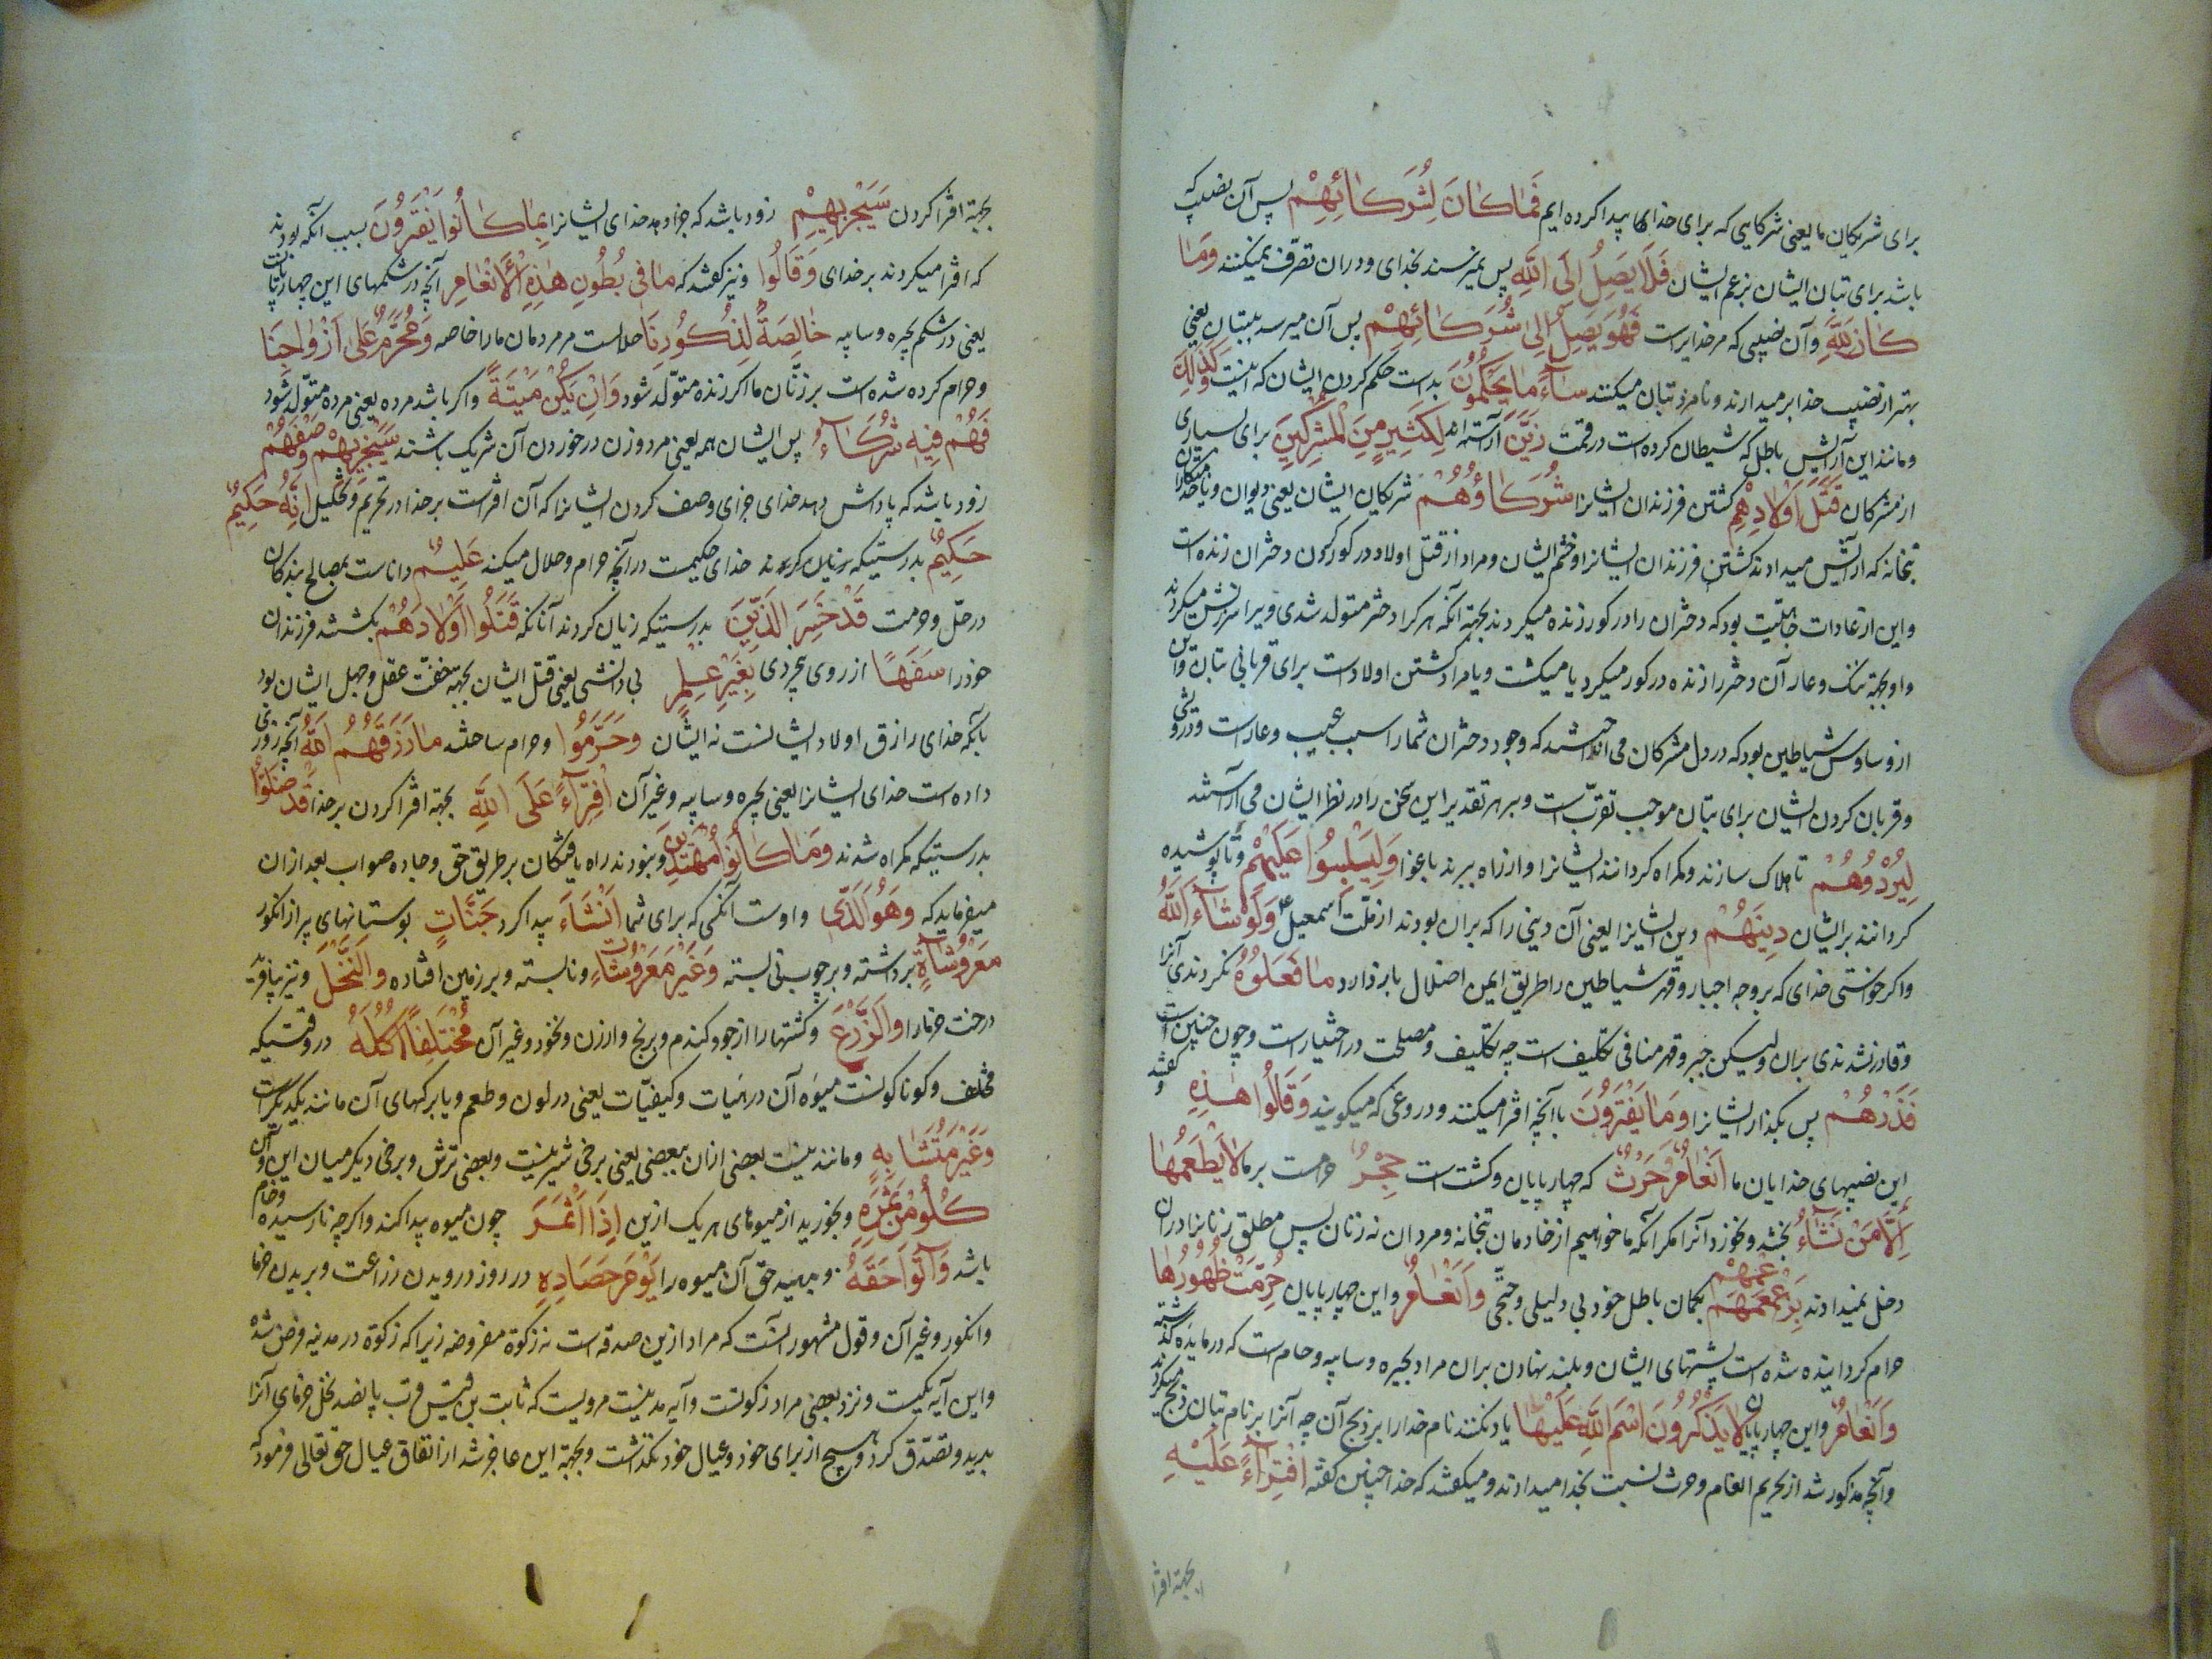 برای شریکان ما یعنی شرکایی که برای خدای ها پیدا کرده ایم فَمَا كَانَ لِشُرَكَائِهِمْ پس آن نصیب که
باشد برای بتان ایشان بزعم ایشان فَلَا يَصِلُ اِلَى اللَّهِ پس نمیرسند بخدای و دران تصرّف نمیکنند وَمَا
كَانَ لِلَّهِ و آن نصیبی که مر خدایراست فَهُوَ يَصِلُ اِلٰى شُرَكَائِهِمْ پس آن میرسد ببتان یعنی
بهتر از نصیب خدا بر میدارند و نامزد بتان میکنند سَآءَ مَا يَحْكُمُونَ بد است حکم کردن ایشان که اینست وَكَذٰلِكَ
و مانند این آرایش باطل که شیطان کرده است در قسمت زَيَّنَ آراسته اند لِكَثِيرٍ مِنَ الْمُشْرِكِينَ برای بسیاری
از مشرکان قَتْلَ اَوْلَادِهِمْ کشتن فرزندان ایشانرا شُرَكَاؤُهُمْ شریکان ایشان یعنی دیوان و یا خدمتکاران
بتخانه که آرایش میدادند کشتن فرزندان ایشانرا و ختم ایشان و مراد از قتل اولاد در کور کردن دختران زنده است
و این از عادات جاهلیّت بود که دختران را در کور زنده میکردند بجهة آنکه هر کرا دختر متولد شدی ویرا سرزنش میکردند
و او بجهة ننک و عار آن دختر را زنده در کور میکرد یا میکشت و یا مراد کشتن اولاد است برای قربانی بتان و این
از وساوس شیاطین بود که در دل مشرکان می انداختند که وجود دختران شما را سبب عیب و عار است و درویشی
و قربان کردن ایشان برای بتان موجب تقرّب است و بر هر تقدیر این سخن را در نظر ایشان می آراستند
لِيُرْدُوهُمْ تا هلاک سازند و کمراه کردانند ایشانرا و از راه ببرند باغوا وَلِيَلْبِسُوا عَلَيْهِمْ و تا پوشیده
کردانند بر ایشان دِينَهُمْ دین ایشانرا یعنی آن دینی را که بران بودند از ملّت اسمعیل ع وَلَوْ شَآءَ اللَّهُ
و اکر خواستی خدای که بر وجه اجبار و قهر شیاطین را طریق ایمن اضلال باز دارد مَا فَعَلُوهُ نکردندی آنرا
و قادر نشدندی بران ولیکن جبر و قهر منافی تکلیف است چه تکلیف و مصلحت در اختیار است و چون چنین است
فَذَرْهُمْ پس بکذار ایشانرا وَمَا يَفْتَرُونَ با آنچه افترا میکنند و دروغی که میکویند وَقَالُوا هٰذِهِ و کفتند
این نصیبهای خدایان ما اَنْعَامٌ وَحَرْثٌ که چهارپایان و کشت است حِجْرٌ حرامست بر ما لَا يَطْعَمُهَا
اِلَّا مَنْ نَشَآءُ نچشد و نخورد آنرا مکر آنکه ما خواهیم از خادمان بتخانه و مردان نه زنان پس مطلق زنانرا دران
دخل نمیدادند بِزَعْمِهِمْ بکمان باطل خود بی دلیلی و حجّتی وَاَنْعَامٌ و این چهارپایان حُرِّمَتْ ظُهُورُهَا
حرام کردانیده شده است پشتهای ایشان و بلند نهادن بران مراد بحیره و سایبه و حام است که در مایده کذشته
وَاَنْعَامٌ و این چهارپایان لَا يَذْكُرُونَ اسْمَ اللَّهِ عَلَيْهَا یاد نکنند نام خدا را بر ذبح آن چه آنرا بر نام بتان ذبح میکردند
و آنچه مذکور شد از تحریم انعام و حرث نسبت بخدا میدادند و میکفتند که خدا چنین کفته افْتِرَآءً عَلَيْهِ
بجهة افترا
بجهة افترا کردن سَيَجْزِيهِمْ زود باشد که جزا دهد خدای ایشانرا بِمَا كَانُوا يَفْتَرُونَ بسبب آنکه بودند
که افترا میکردند بر خدای وَقَالُوا و نیز کفتند که مَا فِى بُطُونِ هٰذِهِ الْاَنْعَامِ آنچه در شکمهای این چهارپایانست
یعنی در شکم بحیره و سایبه خَالِصَةٌ لِذُكُورِنَا حلالست مر مردمان ما را خاصه وَمُحَرَّمٌ عَلٰى اَزْوَاجِنَا
و حرام کرده شده است بر زنان ما اکر زنده متولّد شود وَاِنْ يَكُنْ مَيْتَةً و اکر باشد مرده یعنی مرده متولّد شود
فَهُمْ فِيهِ شُرَكَآءُ پس ایشان همه یعنی مرد و زن در خوردن آن شریک باشند سَيَجْزِيهِمْ وَصْفَهُمْ
زود باشد که پاداش دهد خدای جزای وصف کردن ایشانرا که آن افتراست بر خدا در تحریم و تحلیل اِنَّهُ حَكِيمٌ
حَكِيمٌ بدرستیکه خدای حکیمست در آنچه حرام و حلال میکند عَلِيمٌ داناست بمصالح بندکان
در حلّ و حرمت قَدْ خَسِرَ الَّذِينَ بدرستیکه زیان کردند آنانکه قَتَلُوا اَوْلَادَهُمْ بکشتند فرزندان
خود را سَفَهًا از روی بیخردی بِغَيْرِ عِلْمٍ بی دانشی یعنی قتل ایشان بجهة خفّت عقل و جهل ایشان بود
بآنکه خدای رازق اولاد ایشانست نه ایشان وَحَرَّمُوا و حرام ساختند مَا رَزَقَهُمُ اللَّهُ آنچه روزی
داده است خدای ایشانرا یعنی بحیره و سایبه و غیر آن افْتِرَآءً عَلَى اللَّهِ بجهة افترا کردن بر خدا قَدْ ضَلُّوا
بدرستیکه کمراه شدند وَمَا كَانُوا مُهْتَدِينَ و نبودند راه یافتکان بر طریق حق و جاده صواب بعد ازان
میفرماید که وَهُوَ الَّذِى و اوست آنکسی که برای شما اَنْشَاَ پیدا کرد جَنَّاتٍ بوستانهای پر از انکور
مَعْرُوشَاتٍ برداشته و بر چوب بندی بسته وَغَيْرَ مَعْرُوشَاتٍ و نابسته و بر زمین افتاده وَالنَّخْلَ و نیز بیافرید
درخت خرما را وَالزَّرْعَ و کشتها را از جو و کندم و برنج و ارزن و نخود و غیر آن مُخْتَلِفًا اُكُلُهُ در وقتیکه
مختلف و کوناکونست میوه آن در هیآت و کیفیّات یعنی در لون و طعم و یا برکهای آن مانند یکدیکر است
وَغَيْرَ مُتَشَابِهٍ و مانند نیست بعضی ازان ببعضی یعنی برخی شیرینست و بعضی ترش و برخی دیکر میان این و آن
كُلُوا مِنْ ثَمَرِهِ و بخورید از میوهای هر یک ازین اِذَا اَثْمَرَ چون میوه پیدا کند و اکرچه نارسیده و خام
باشد وَآتُوا حَقَّهُ و بدهید حق آن میوه را يَوْمَ حَصَادِهِ در روز درویدن زراعت و بریدن خرما
و انکور و غیر آن و قول مشهور آنست که مراد ازین صدقه است نه زکوة مفروضه زیرا که زکوة در مدینه فرض شده
و این آیه مکیست و نزد بعضی مراد زکوتست و آیه مدنیست مرویست که ثابت بن قیس پانصد نخل خرمای آنرا
برید و تصدّق کرد و هیچ از برای خود و عیال خود نکذاشت و بجهة این عاجز شد از انفاق عیال حق تعالی فرمود که